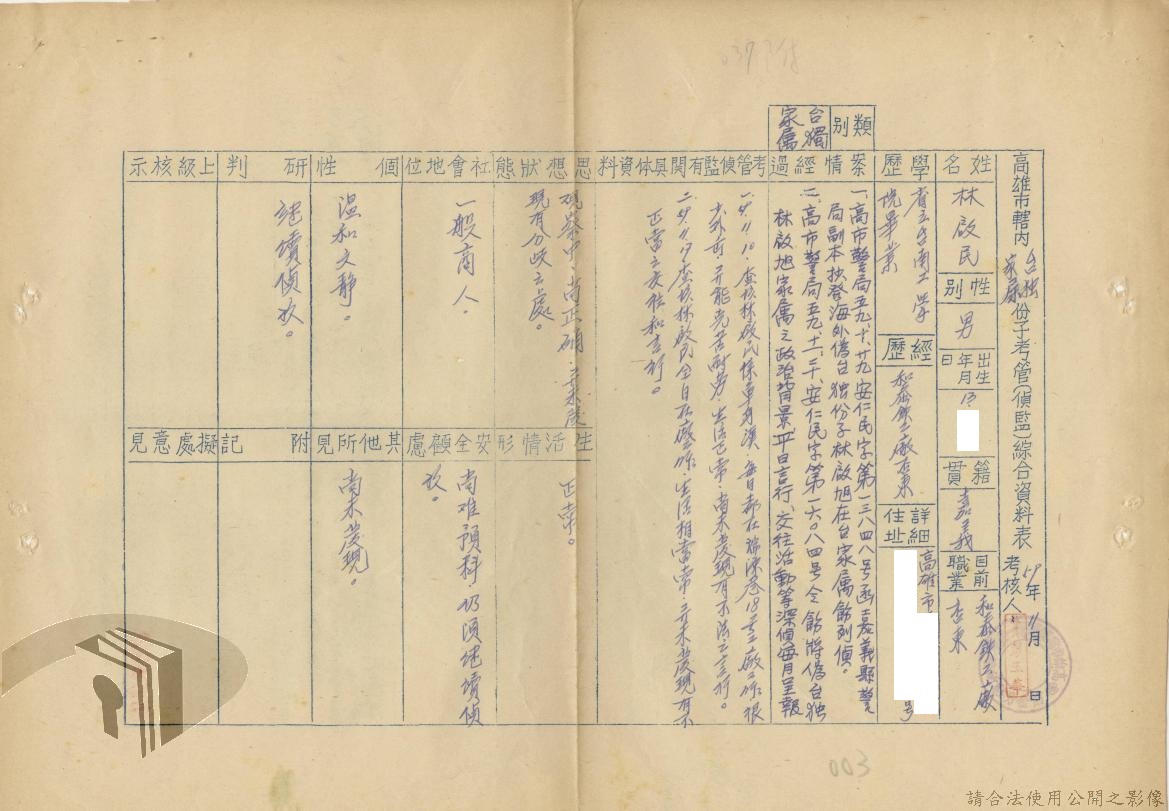 037
高雄市轄內台独家屬份子考管(偵監)綜合資料表
考核人
59年11月 日
姓名
林啟民
性別
男
出生年月日
13.
籍貫
嘉義
目前職業
和泰鉄工廠
股東
學歷
省立台南工學
院畢業
經歷
和泰鉄工廠股東
詳細住址
高雄市
号
類別
台獨
家屬
案情經過
一、高市警局五九、十、廿九安仁民字第一三八四八号函嘉義縣警
局副本抉登海外偽台独份子林啟旭在台家屬飭列偵。
二、高市警局五九、十二、三十、安仁民字第一六〇八四号令飭將偽台独
林啟旭家属之政治背景、平日言行、交往活動等深偵每月呈報
考管偵監有關具体資料
一、59.11.10.查核林啟民係單身漢,每日都在瑞源巷18号工廠工作很
少外出,且能克苦耐勞,生活正常,尚未發現有不法之言行。
二、59.11.17查核林啟民全日在廠工作,生活相當正常,並未發現有不
正當之交往和言行。
思想狀態
觀察中,尚正確,並未發
現有分歧之處。
社會地位
一般商人。
個性
溫和文靜。
研判
継續偵攷。
上級核示
生活情形
正常。
安全顧慮
尚难預料,仍須継續偵
攷。
其他所見
尚未發現。
附記
擬處意見
003
請合法使用公開之影像